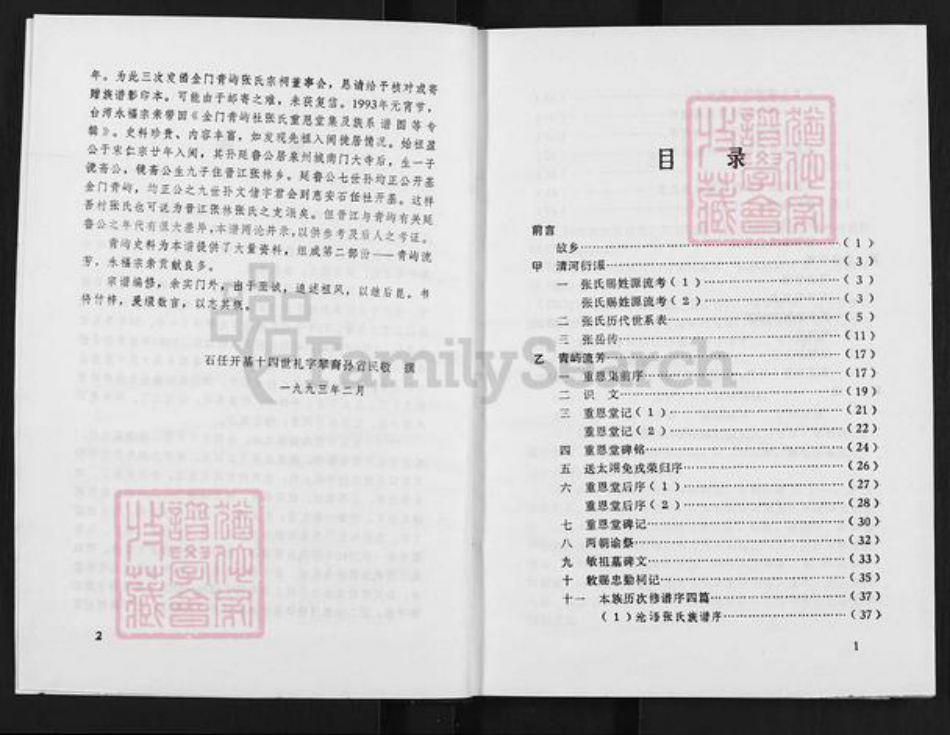 年。为此三次发函金门青屿张氏宗祠董事会,恳请给予核对或寄
赠族谱影印本。可能由于邮寄之难,未获复信。1993年元宵节,
台湾永福宗亲带回《金门青屿社张氏重恩堂集及族系谱图等专
辑》。史料珍贵、内容丰富,如发现先祖入闽徙居情况。始祖盈
公于宋仁宗廿年入闽,其孙延鲁公居泉州城南门大寺后,生一子
镜斋公,镜斋公生九子住晋江张林乡。延鲁公七世孙均正公开基
金门青屿,均正公之九世孙文信字君会到惠安石任社开基。这样
吾村张氏也可说为晋江张林张氏之支派矣。但晋江与青屿有关延
鲁公之年代有很大差异,本谱两论并录,以供参考及后人之考证。
青屿史料为本谱提供了大量资料,组成第二部份——青屿流
芳,永福宗亲贡献良多。
宗谱编修,余实门外,由于至诚,追述祖风,以雄后昆。书
将付梓,爰缀数言,以志其概。
石任开基十四世礼字辈裔孙省民敬 撰
一九九三年二月
2
猶他家
譜學會
收藏
FamilySearch
目 录
猶他家
譜學會
收藏
前言
故乡……(1)
甲 清河衍源……(3)
一 张氏赐姓源流考(1)……(3)
张氏赐姓源流考(2)……(3)
二 张氏历代世系表……(5)
三 张岳传……(11)
乙 青屿流芳……(17)
一 重恩集前序……(17)
二 识 文……(19)
三 重恩堂记(1)……(21)
重恩堂记(2)……(22)
四 重恩堂碑铭……(24)
五 送太翊免戍荣归序……(26)
六 重恩堂后序(1)……(27)
重恩堂后序(2)……(28)
七 重恩堂碑记……(30)
八 两朝谕祭……(32)
九 敏祖墓碑文……(33)
十 敕赐忠勤祠记……(35)
十一 本族历次修谱序四篇……(37)
(1)沧浯张氏族谱序……(37)
1